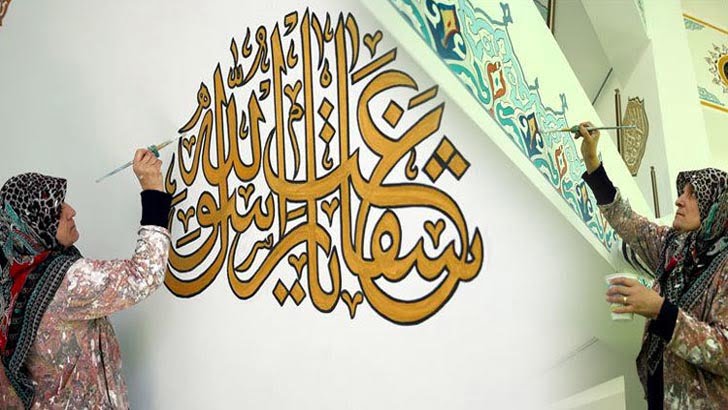 شفاعت يا رسول الله